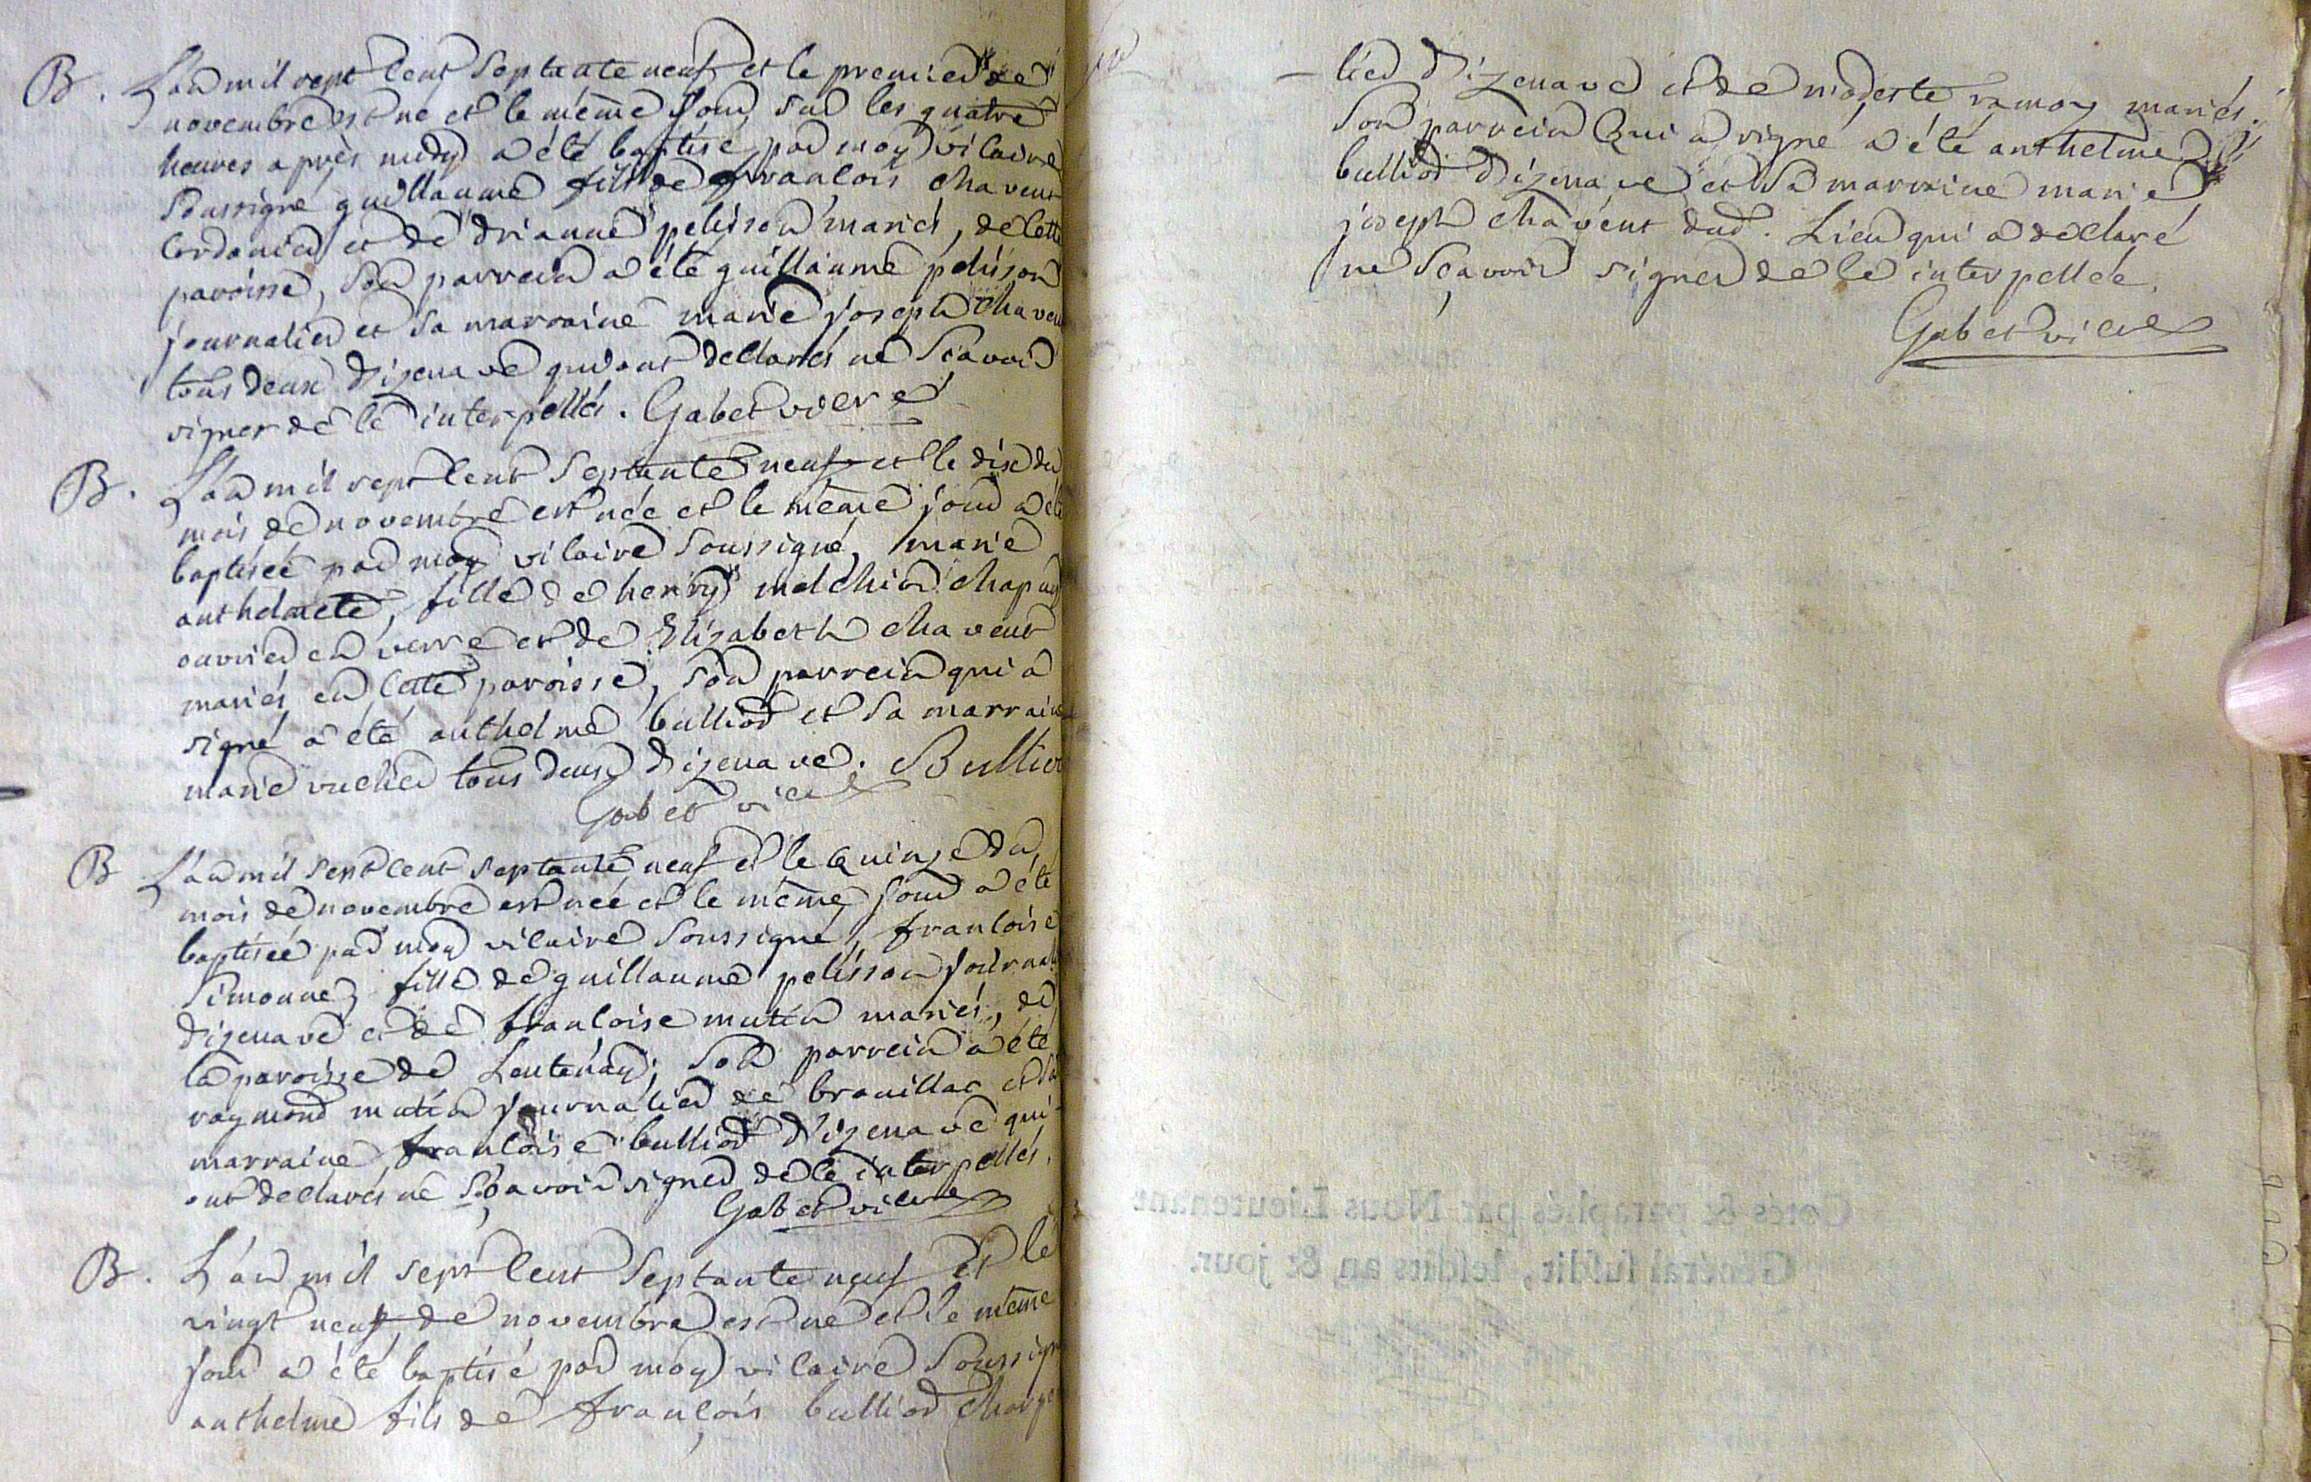 B. L'an mil sept cent septante neuf et le premier de
novembre est né et le même jour sur les quatre
heures après midy a été baptisé par moy vicaire
soussigné guillaume fils de françois chavent
cordonier et de drianne pelisson mariés, de cette
paroisse, son parrein a été guillaume pelisson
journalier et sa marraine marie joseph chaven
tous deux d'izenave qui ont declarés ne sçavoir
signer de ce interpellés. Gabet vicre
B. L'an mil sept cent septante neuf et le dix du
mois de novembre est née et le même jour a été
baptisée par moy vicaire soussigné, marie
anthelmete, fille de henry melchior chapuy
ouvrier en verre et de Elizabeth chavent
mariés en cette paroisse, son parrein qui a
signé a été anthelme bulliod et sa marraine
marie vuchier tous deux d'izenave. Bulliod
Gabet vice
B L'an mil sept cent septante neuf et le quinze du
mois de novembre est née et le même jour a été
baptisée par moy vicaire soussigné, françoise
simonne, fille de guillaume pelisson journal
d'izenave et de françoise mutin mariés, de
la paroisse de Lentenay; son parrein a été
raymond mutin journalier de brouillac et sa
marraine françoise bulliod d'izenave qui
ont declarés ne sçavoir signer de ce interpellés.
Gabet vicre
B. L'an mil sept cent septante neuf et le
vingt neuf de novembre est né et le même
jour a été baptisé par moy vicaire soussign
anthelme fils de françois bulliod charpe
tier d'izenave et de modeste ramoy mariés.
son parrein qui a signé a été anthelme
bulliod d'izenave et sa marraine marie
joseph chavent dud. Lieu qui a declaré
ne sçavoir signer de ce interpellée.
Gabet vice
Cotés & paraphés par Nous Lieutenant
Général susdit, lesdits an & jour.